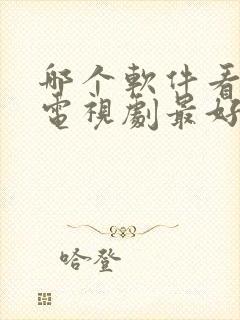 哪个軟件看
電視劇最好
哈登